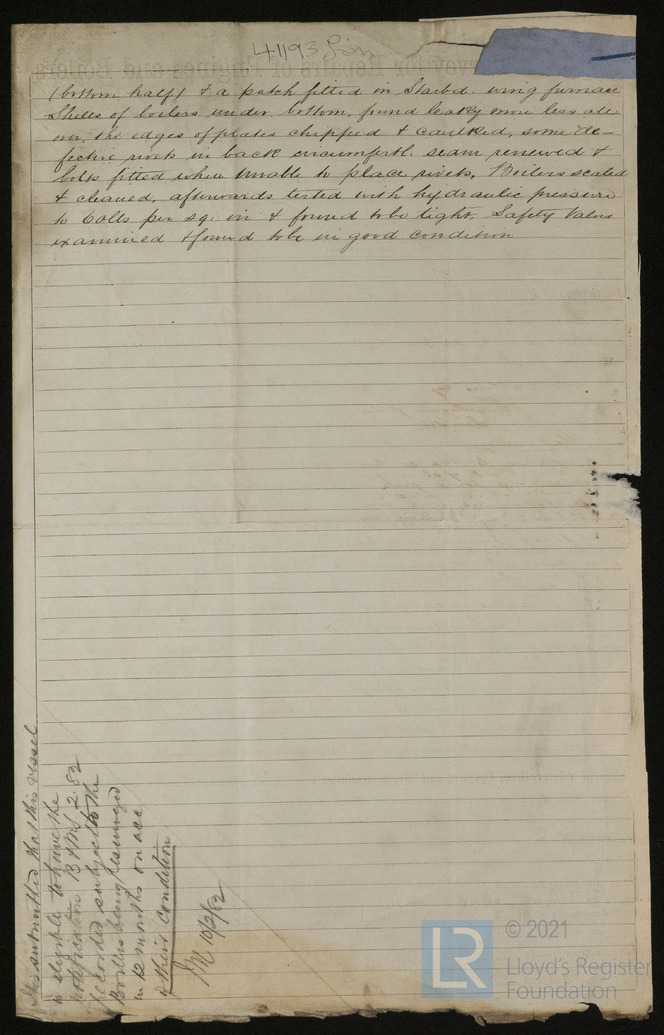 41193 Lon
(bottom half) & a patch fitted in Starbd. wing furnace
Shells of boilers under bottom, found leaky more less all
over, the edges of plates chipped & caulked, some de-
fective rivets in back circumftl. seam renewed &
bolts fitted when unable to place rivets, Boilers scaled
& cleaned, afterwards tested with hydraulic pressure
to 60lbs per sq: in & found to be tight, Safety Valves
examined & found to be in good condition
It is submitted that this vessel
is eligible to have the
notification B&MS 2.82
recorded subject to the
Boilers being surveyed
in 12 months on acc
of their condition
M 10/2/82
© 2021
LR
Lloyd's Register
Foundation